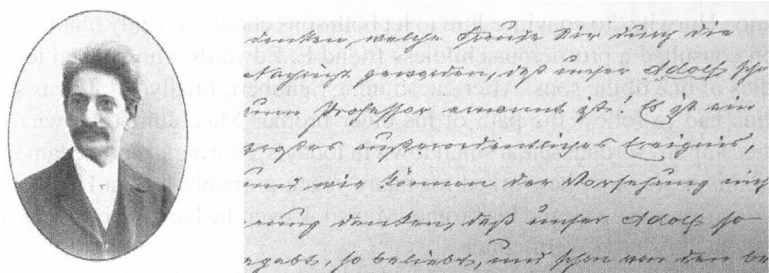 denken, welche Freude Dir durch die
Nachricht geworden, daß unser Adolf scho
zum Professor ernannt ist! Es ist ein
großes außerordentliches Ereignis,
und wir können der Vorsehung nich
genug danken, daß unser Adolf so
egabt, so beliebt, und schon von den be